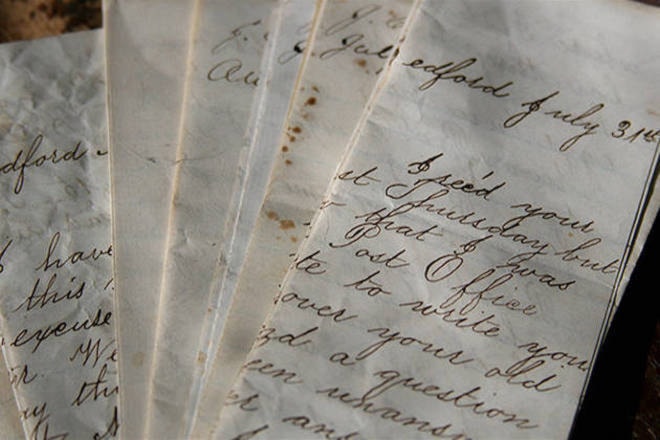 dford.
have
this
excuse
r. We
ay th
J.
Au
J.
Jul
edford July 31st
I rec'd your
st Thursday but
that I was
Post Office
te to write you
over your old
nd a question
een unans
er an